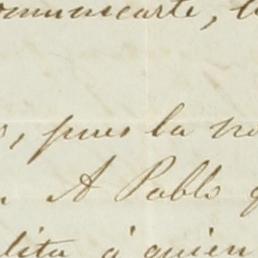 comunicarte, l
s, pues la no
n A Pablo q
lita á quien